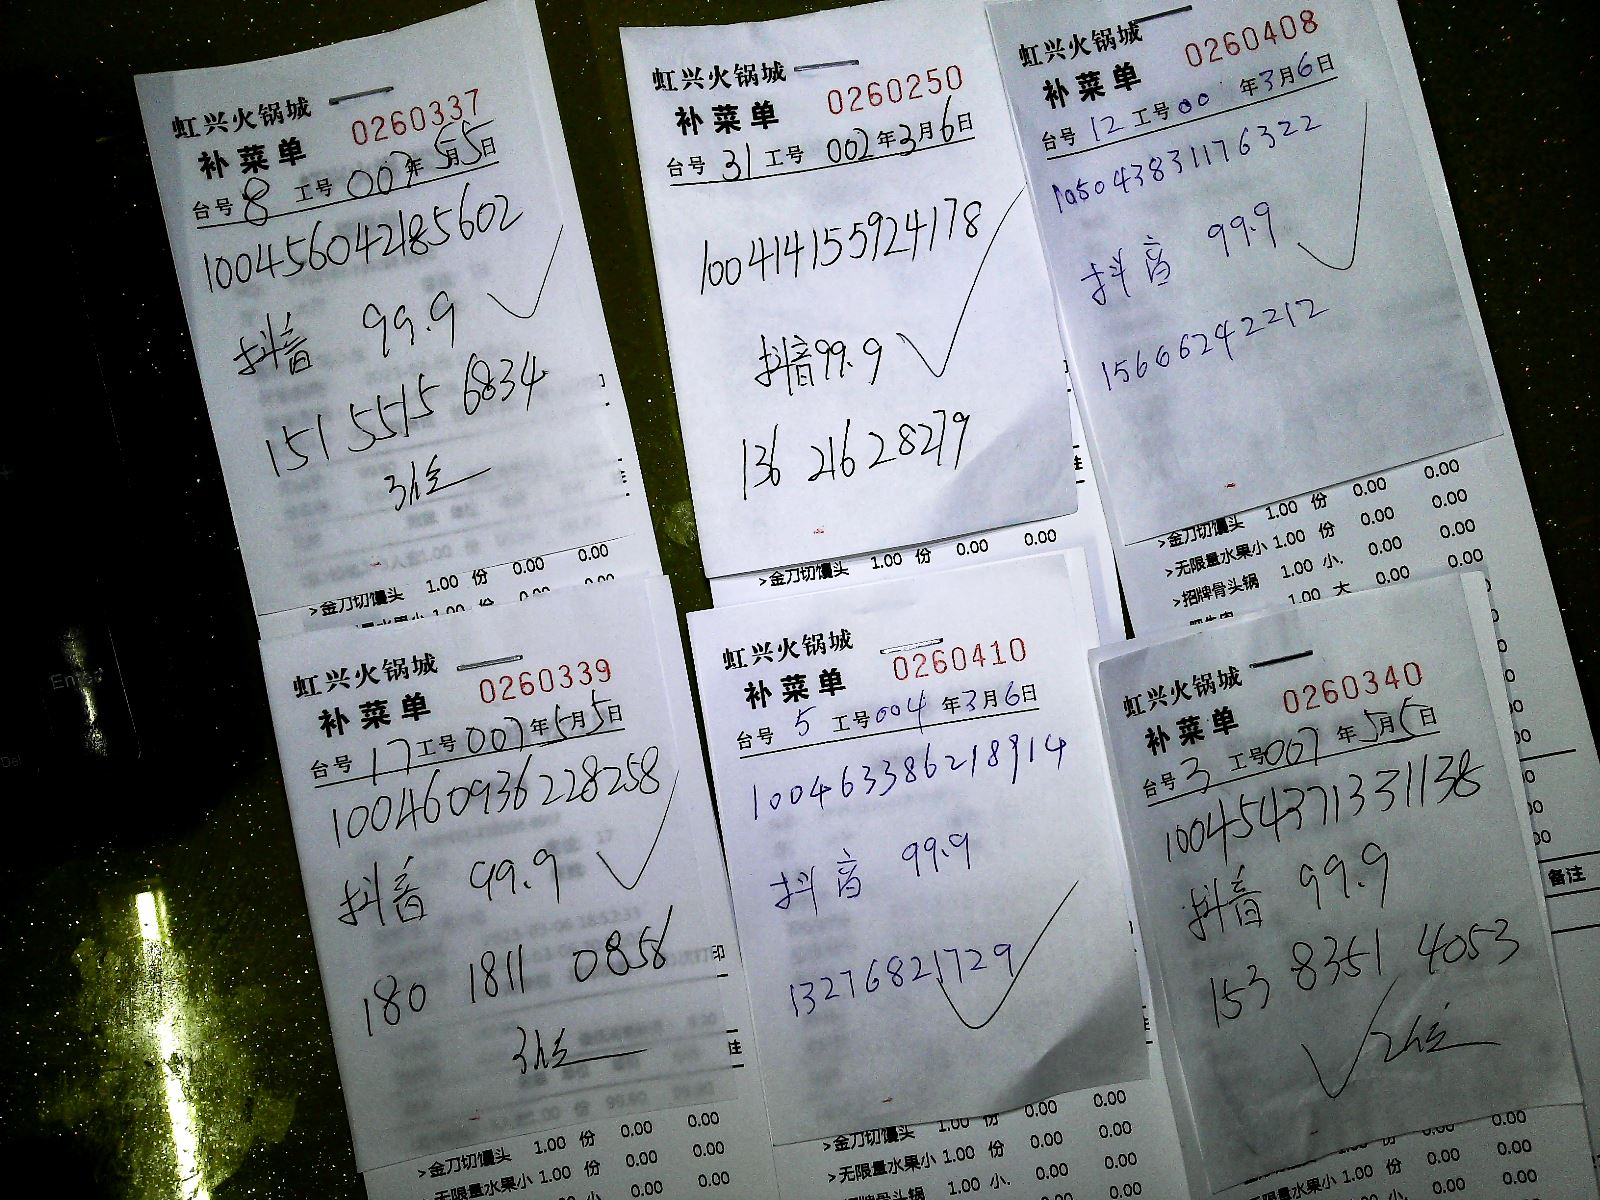 虹兴火锅城
补菜单 0260337
台号 8 工号 007 年 5月5日
100456042185602
抖音 99.9
151 5515 6834
3位
>金刀切馒头 1.00 份 0.00 0.00
虹兴火锅城
补菜单 0260250
台号 31 工号 002 年 3月6日
100414155924178
抖音 99.9
136 216 28279
>金刀切馒头 1.00 份 0.00 0.00
虹兴火锅城
补菜单 0260408
台号 12 工号 00 年 3月6日
1005043831176322
抖音 99.9
15666242212
>金刀切馒头 1.00 份 0.00 0.00
>无限量水果小 1.00 份 0.00 0.00
>招牌骨头锅 1.00 小. 0.00 0.00
1.00 大 0.00 0.00
虹兴火锅城
补菜单 0260339
台号 17 工号 007 年 5月5日
100460936228258
抖音 99.9
180 1811 0856
3位
>金刀切馒头 1.00 份 0.00 0.00
>无限量水果小 1.00 份 0.00 0.00
小. 0.00 0.00
虹兴火锅城
补菜单 0260410
台号 5 工号 004 年 3月6日
100463386218914
抖音 99.9
13276821729
>金刀切馒头 1.00 份 0.00 0.00
>无限量水果小 1.00 份 0.00 0.00
>招牌骨头锅 1.00 小. 0.00 0.00
虹兴火锅城
补菜单 0260340
台号 3 工号 007 年 5月5日
100454371331138
抖音 99.9
153 8351 4053
2位
备注
>金刀切馒头 1.00 份 0.00 0.00
>无限量水果小 1.00 份 0.00 0.00
Enter
Del